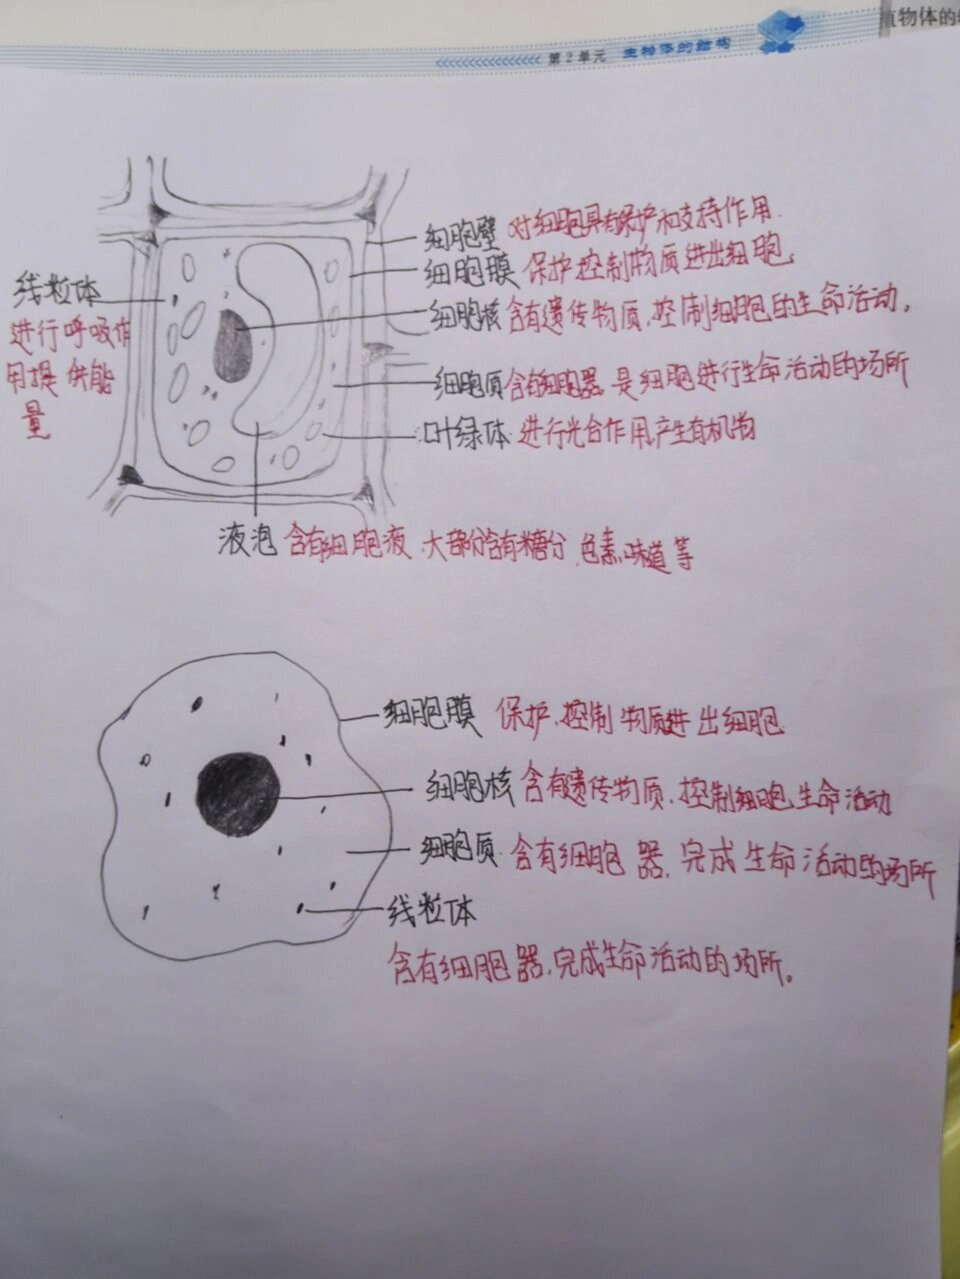 植物体的结
第2单元 生物体的结构
细胞壁 对细胞具有保护和支持作用.
细胞膜 保护.控制物质进出细胞.
细胞核 含有遗传物质.控制细胞的生命活动.
线粒体
进行呼吸作
用提供能
量
细胞质 含有细胞器 是细胞进行生命活动的场所
叶绿体 进行光合作用,产生有机物
液泡 含有细胞液.大部分含有糖分.色素.味道等
细胞膜 保护.控制物质进出细胞
细胞核 含有遗传物质.控制细胞生命活动
细胞质 含有细胞器.完成生命活动的场所
线粒体
含有细胞器.完成生命活动的场所。